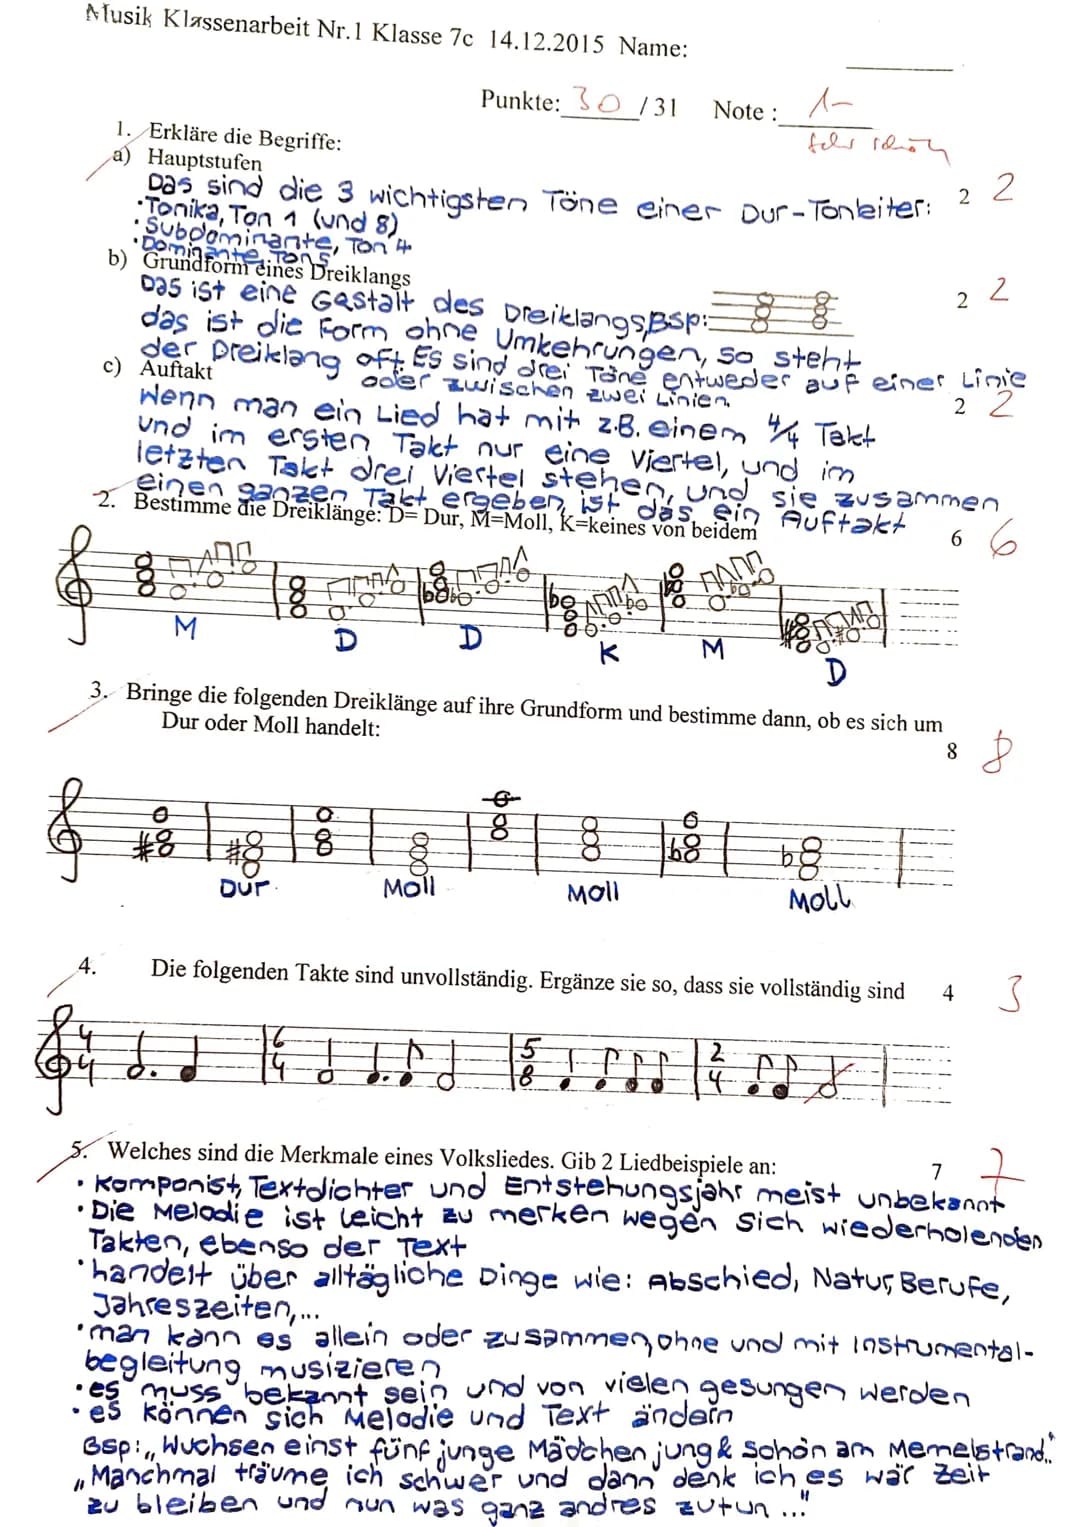 Musik Klassenarbeit Nr.1 Klasse 7c 14.12.2015 Name:
Punkte: 30 /31 Note : 1-
sehr schön
1. Erkläre die Begriffe:
a) Hauptstufen
Das sind die 3 wichtigsten Töne einer Dur-Tonleiter: 2 2
•Tonika, Ton 1 (und 8)
•Subdominante, Ton 4
•Dominante, Ton 5
b) Grundform eines Dreiklangs
Das ist eine Gestalt des Dreiklangs, Bsp: 2 2
das ist die Form ohne Umkehrungen, so steht
der Dreiklang oft. Es sind drei Töne entweder auf einer Linie
oder zwischen zwei Linien.
c) Auftakt 2 2
Wenn man ein Lied hat mit z.B. einem 4/4 Takt
und im ersten Takt nur eine Viertel, und im
letzten Takt drei Viertel stehen, und sie zusammen
einen ganzen Takt ergeben, ist das ein Auftakt
2. Bestimme die Dreiklänge: D= Dur, M=Moll, K=keines von beidem 6 6
M D D K M D
3. Bringe die folgenden Dreiklänge auf ihre Grundform und bestimme dann, ob es sich um
Dur oder Moll handelt:
8 8
Dur Moll Moll Moll
4. Die folgenden Takte sind unvollständig. Ergänze sie so, dass sie vollständig sind 4 3
4/4 6/4 5/8 2/4
5. Welches sind die Merkmale eines Volksliedes. Gib 2 Liedbeispiele an: 7 7
• Komponist, Textdichter und Entstehungsjahr meist unbekannt
• Die Melodie ist leicht zu merken wegen sich wiederholenden
Takten, ebenso der Text
• handelt über alltägliche Dinge wie: Abschied, Natur, Berufe,
Jahreszeiten,...
• man kann es allein oder zusammen, ohne und mit Instrumental-
begleitung musizieren
• es muss bekannt sein und von vielen gesungen werden
• es können sich Melodie und Text ändern
Bsp: „Wuchsen einst fünf junge Mädchen jung & schön am Memelstrand.."
„Manchmal träume ich schwer und dann denk ich es wär Zeit
zu bleiben und nun was ganz andres zutun ..."